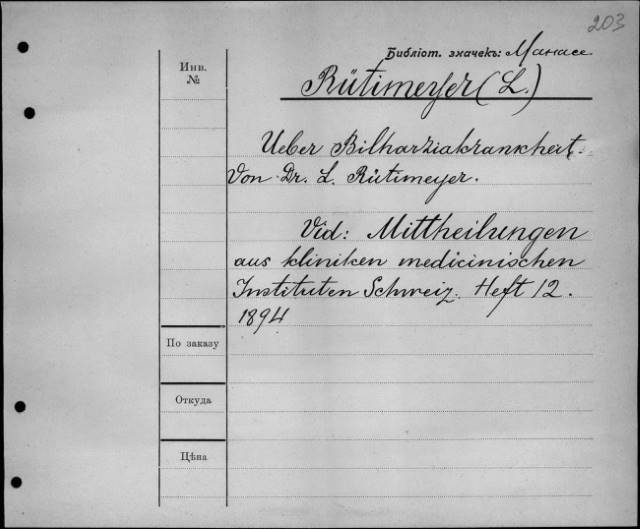 203
Библіот. значекъ: Манасе
Инв.
№
Rütimeyer (L.)
Ueber Bilharziakrankheit.
Von Dr. L. Rütimeyer.
Vid: Mittheilungen
aus kliniken medicinischen
Instituten Schweiz. Heft 12.
1894
По заказу
Откуда
Цѣна